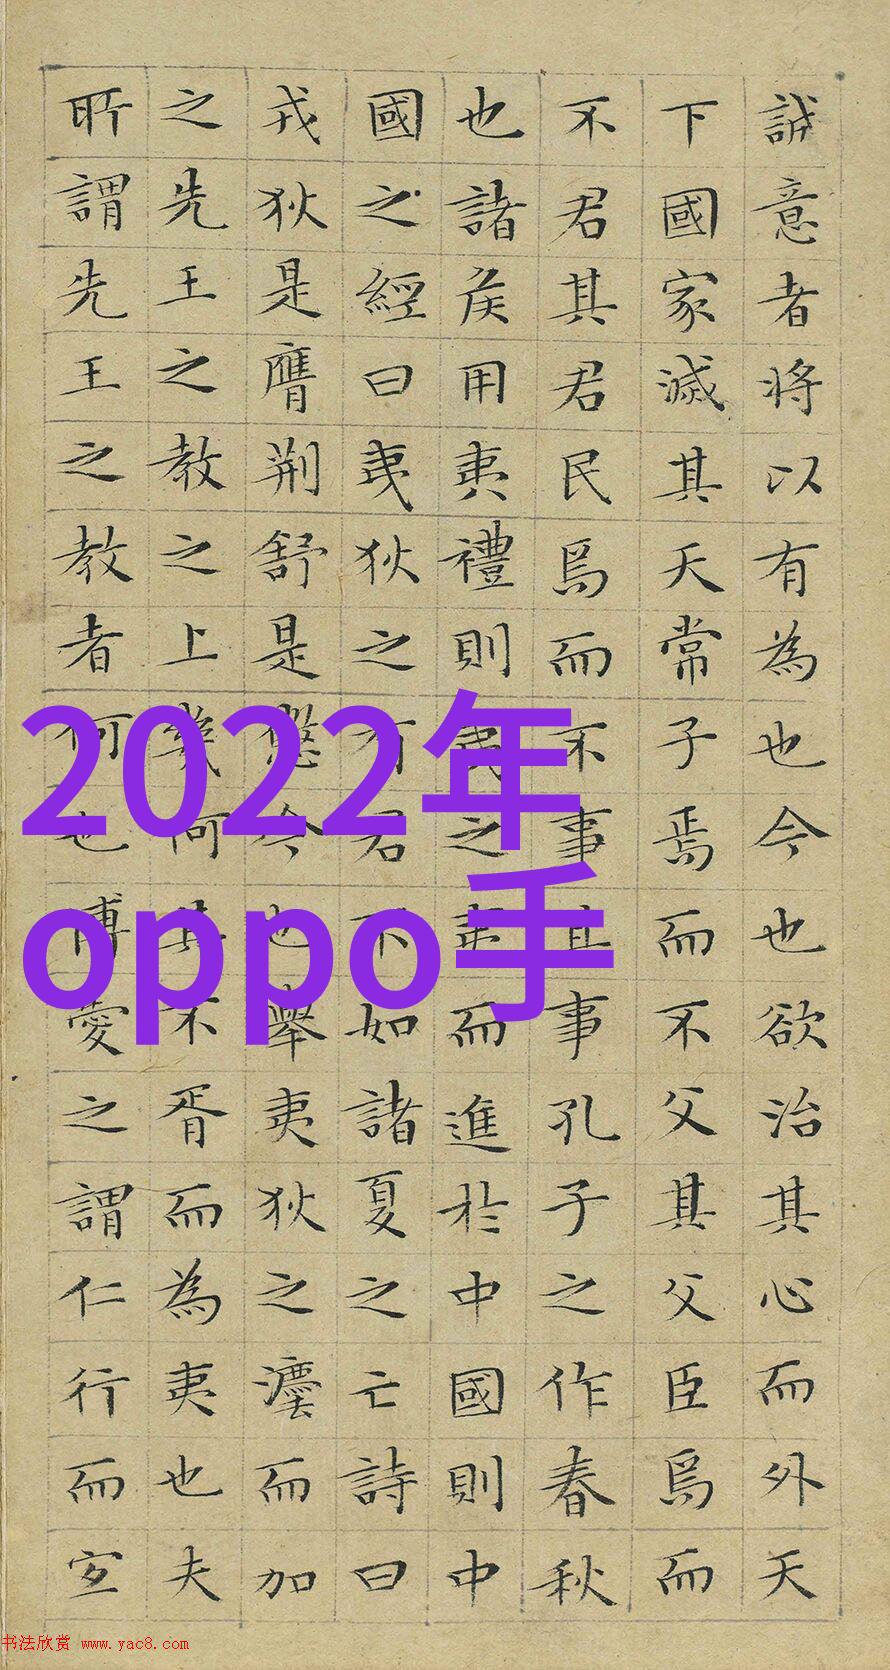 誠意者将以有為也今也欲治其心而外天
下國家滅其天常子焉而不父其父臣焉而
不君其君民焉而不事其事孔子之作春秋
也諸侯用夷禮則夷之夷而進於中國則中
國之經曰夷狄之有君不如諸夏之亡詩曰
戎狄是膺荊舒是懲今也舉夷狄之灋而加
之先王之教之上幾何其不胥而為夷也夫
所謂先王之教者何也博愛之謂仁行而宜
2022年
oppo手
书法欣赏 www.yac8.com